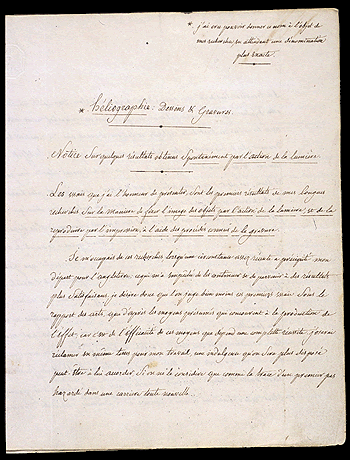 *. j'ai cru pouvoir donner ce nom à l'objet de
mes recherches en attendant une dénomination
plus exacte.
* héliographie. Dessins & Gravures.
Notice Sur quelques résultats obtenus Spontanément par l'action de la lumière.
Les essais que j'ai l'honneur de présenter, Sont les premiers résultats de mes longues
recherches Sur la manière de fixer l'image des objets par l'action de la lumière, et de la
reproduire par l'impression, à l'aide des procédés connus de la gravure.
Je m'occupais de ces recherches lorsqu'une circonstance assez récente a précipité mon
départ pour l'angleterre, ce qui m'a empêché de les continuer et de parvenir à des résultats
plus Satisfaisans. je désire donc que l'on juge bien moins ces premiers essais Sous le
rapport des arts, que d'après les moyens présumés qui concourent à la production de
l'effet; car c'est de l'efficacité de ces moyens que dépend une complette réussite. j'oserai
réclamer en même tems pour mon travail, une indulgence qu'on Sera plus disposé
peut-être à lui accorder, Si on ne le considère que comme la trace d'un premier pas
hazardé dans une carrière toute nouvelle.